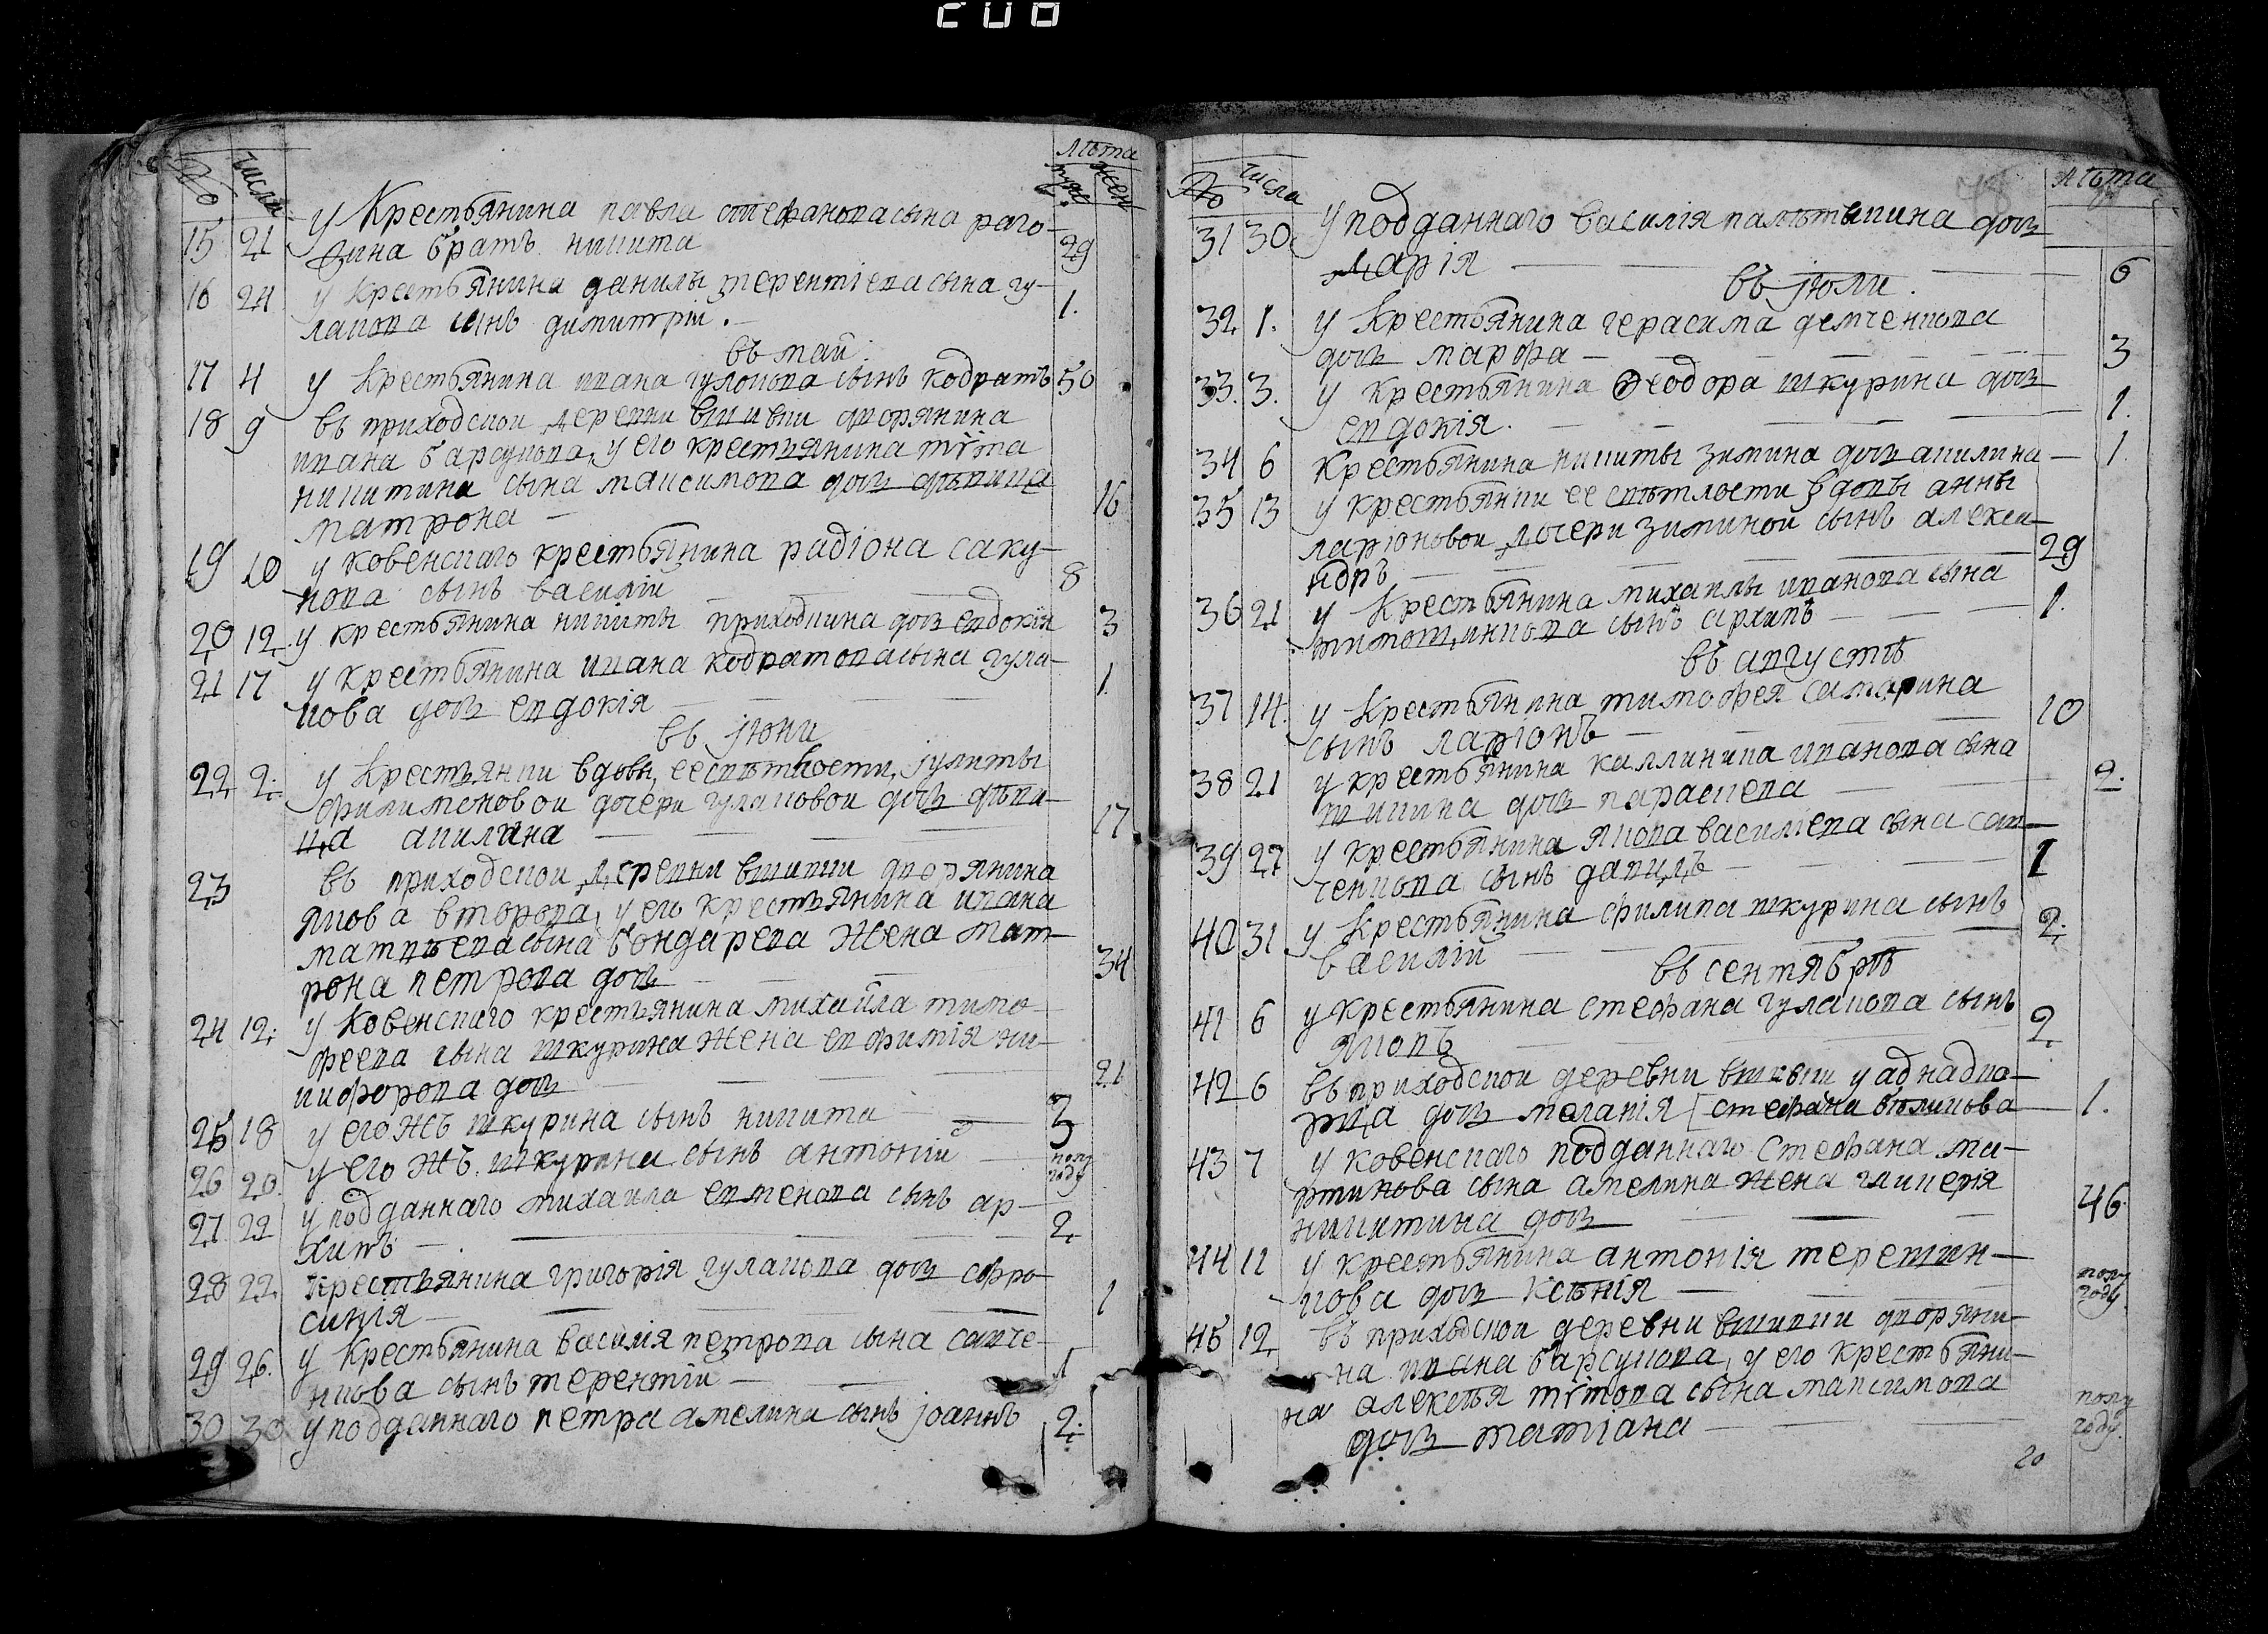 208
№ числа лѣта муж жен
15 21 у Крестьянина павла стефанова сына раго-
зина братъ никита 29
16 24 у крестьянина данилы терентіева сына гу-
лакова сынъ димитріи. 1.
въ маи
17 4 у Крестьянина ивана гулокова сынъ кодратъ 50
18 9 въ приходскои деревни вшивки дворянина
ивана барсукова, у его крестьянина тѵта
никитина сына максимова дочь дѣвица
матрона 16
19 10 у ковенскаго крестьянина радіона саку-
нова сынъ василіи 8
20 12. у крестьянина никиты приходкина дочь евдокія 3
21 17 у крестьянина ивана кодратова сына гула-
кова дочь евдокія 1
въ јюни
22 2. у Крестьянки вдовы, ее свѣтлости, јулиты
филимоновои дочери гулаковои дочь дѣви-
ца акилина 17.
23 въ приходскои деревни вшивки дворянина
якова второва, у его крестьянина ивана
матвѣева сына бондарева жена мат-
рона петрова дочь 34
24 12. у Ковенскаго крестьянина михаила тимо-
феева сына шкурина жена евфимія ни-
кифорова дочь 21
25 18 у его жъ шкурина сынъ никита 3
26 20. у его жъ шкурина сынъ антоніи полу году
27 22 у подданнаго михаила евменова сынъ ар-
хипъ 2.
28 22. крестьянина григорія гулакова дочь ефро-
синія 1
29 26. у Крестьянина василія петрова сына савче-
нкова сынъ терентіи 1
30 30 у подданнаго петра амелина сынъ јоаннъ 2.
№ числа лѣта
31 30 у подданнаго василія дочь
марія 6
въ јюли.
32 1. у Крестьянина герасима демченкова
дочь марфа 3
33. 3. у крестьянина Ѳеодора шкурина дочь
евдокія. 1.
34 6 Крестьянина никиты зимина дочь акилина 1.
35 13 у крестьянки ее свѣтлости вдовы анны
ларіоновои дочери зиминои сынъ алекса-
ндръ 29
36 21 у Крестьянина михаилы иванова сына
сынъ архипъ 1.
въ августѣ
37 14. у Крестьянина тимофея самарина
сынъ ларіонъ 10
38 21 у крестьянина каллиника иванова сына
шишина дочь параскева 2.
39 27 у крестьянина якова василіева сына сав-
ченкова сынъ данилъ 1
40 31 у Крестьянина филипа шкурина сынъ
василіи 2.
въ сентябрѣ
41 6 у крестьянина стефана гулакова сынъ
яковъ 2
42 6 въ приходскои деревни вшивки у аднадво-
рца дочь меланія [стефана великова 1.
43 7 у ковенскаго подданнаго стефана ма-
ртинова сына амелина жена гликерія
никитина дочь 46.
44 11 у крестьянина антонія терешин-
кова дочь Ксѣнія полу году.
45 12 въ приходскои деревни вшивки дворяни-
на ивана барсукова, у его крестьяни-
на алексѣя тѵтова сына максимова
дочь татіана полу году.
20